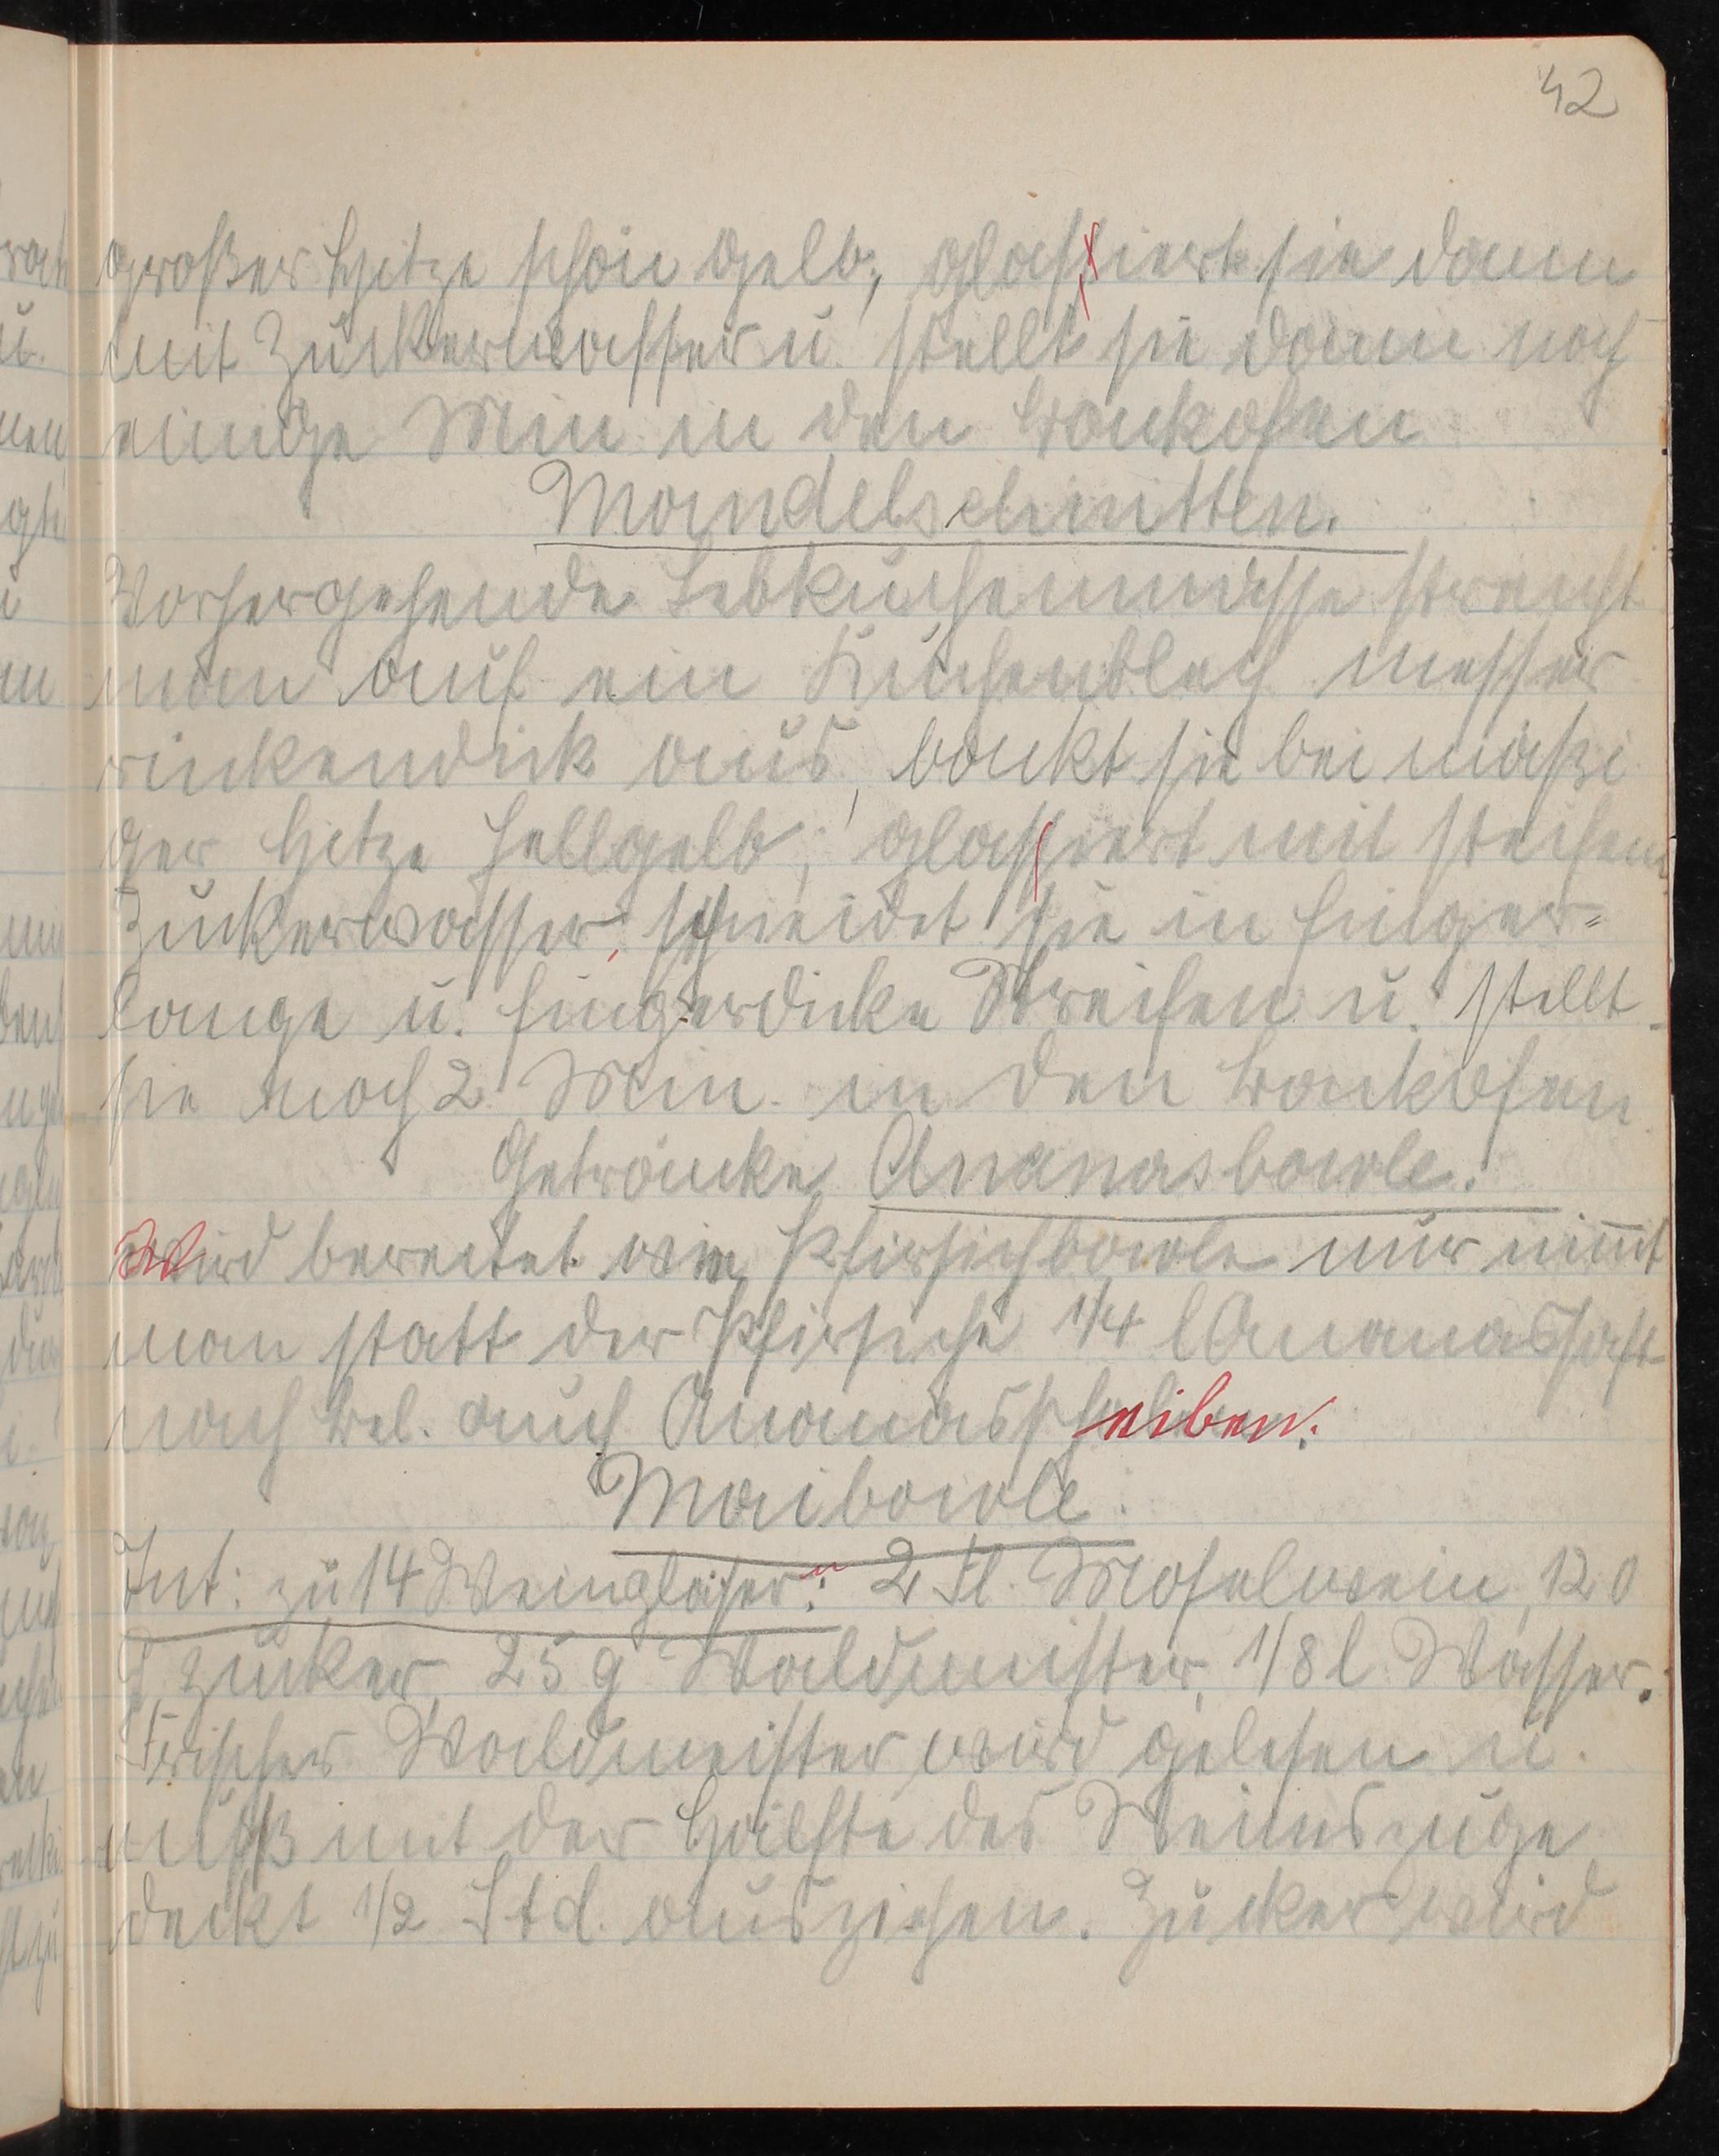 42
großer Hitze schön gelb, glasiert sie dann
mit Zuckerwasser u. stellt sie dann noch
einige Min in den Backofen
Mandelschnitten.
Vorhergehende Lebkuchenmasse streicht
man auf ein Kuchenblech messer
rückendick aus, backt sie bei mäßi
ger Hitze hellgelb, glasiert mit steifem
Zuckerwasser, schneidet sie in finger-
lange u. fingerdicke Streifen u. stellt
sie noch 2 Min. in den Backofen
Getränke Ananasbowle.
Wird bereitet wie Pfirsichbowle nur nim̄t
man statt der Pfirsiche 1/4 l Ananassaft
nach Bel. auch Ananasscheiben.
Maibowle.
Zut: zu 14 Weingläsern: 2 Fl. Moselwein, 120
g Zucker, 25 g Waldmeister, 1/8 l Wasser.
Frischer Waldmeister wird gelesen u.
muß mit der Hälfte des Weines zuge
deckt 1/2 Std. ausziehen. Zucker wird